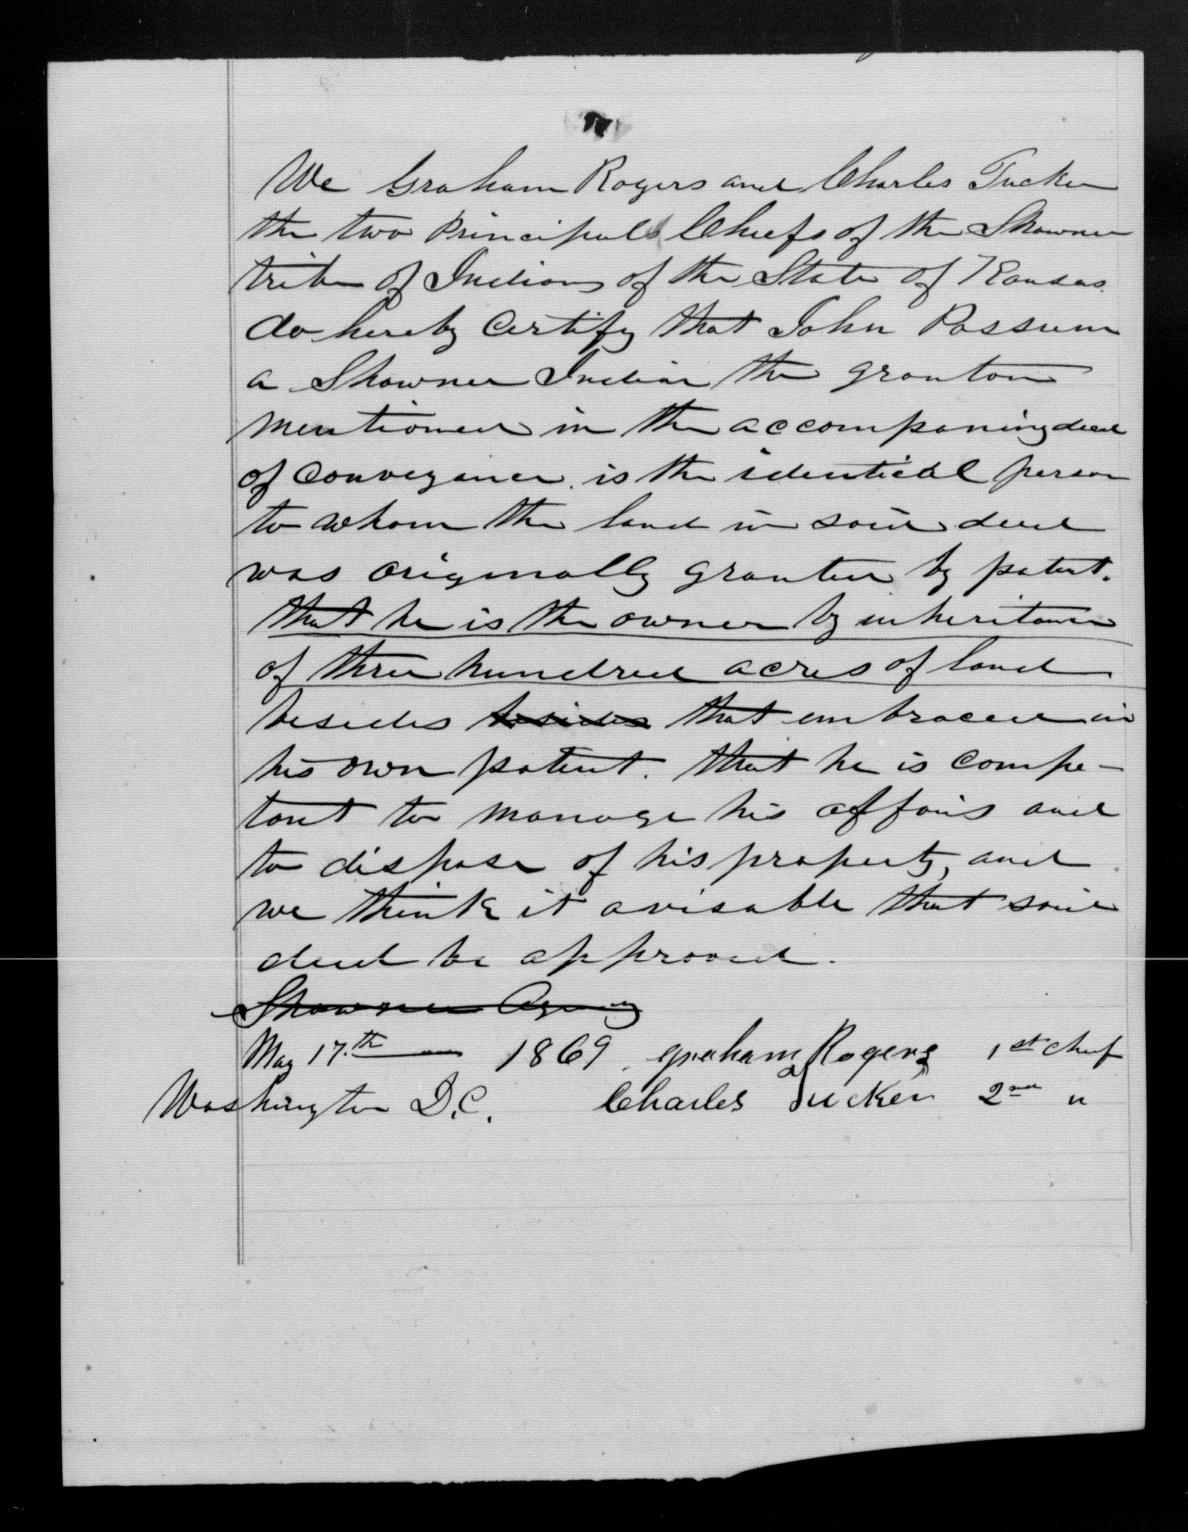 We Graham Rogers and Charles Tucker
the two Principals Chiefs of the Shawnee
tribe of Indians of the State of Kansas
do hereby certify that John Possum
a Shawnee Indian the grantor
mentioned in the accompaning deed
of conveyance is the identical person
to whom the land in said deed
was originally granted by patent.
that he is the owner by inheritance
of three hundred acres of land
besides besides that embraced in
his own patent. that he is compe-
tant to manage his affairs and
to dispose of his property, and
we think it avisable that said
deed be approved.
Shawnee Agency
May 17th 1869 Graham Rogers 1st Chief
Washington D.C. Charles Tucker 2nd "